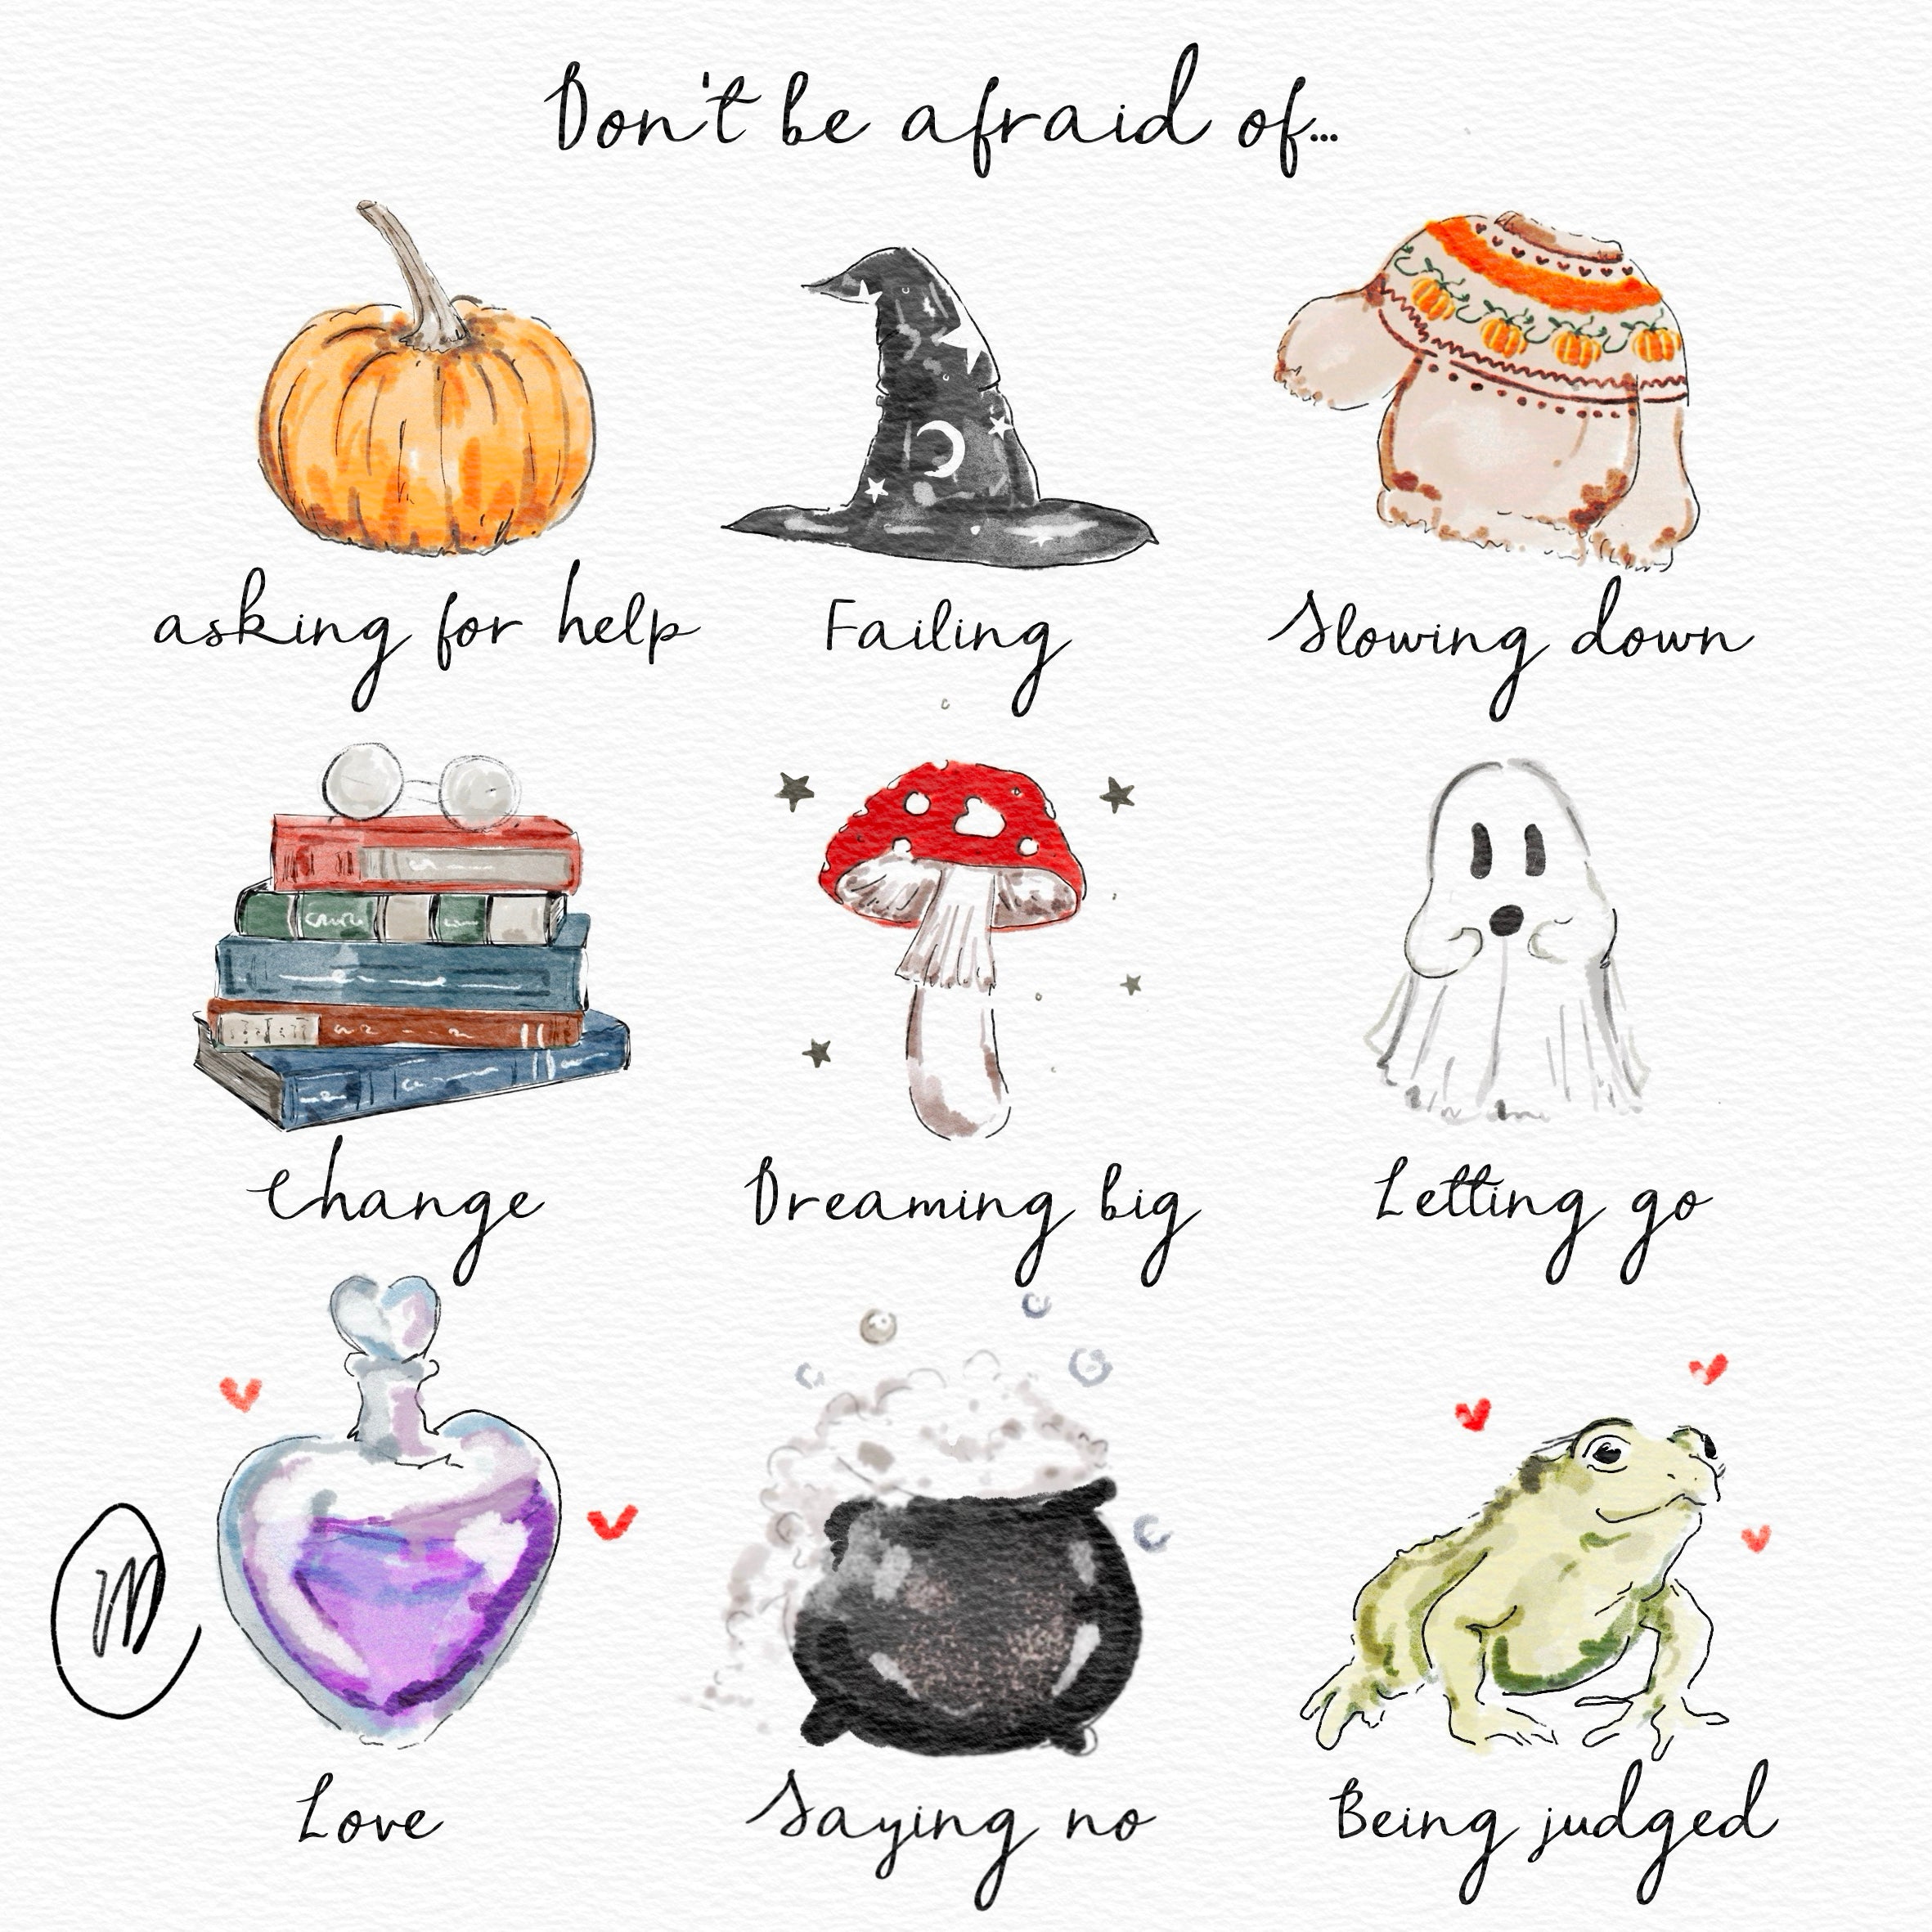 Don't be afraid of...
asking for help
Failing
Slowing down
Change
Dreaming big
Letting go
M
Love
Saying no
Being judged